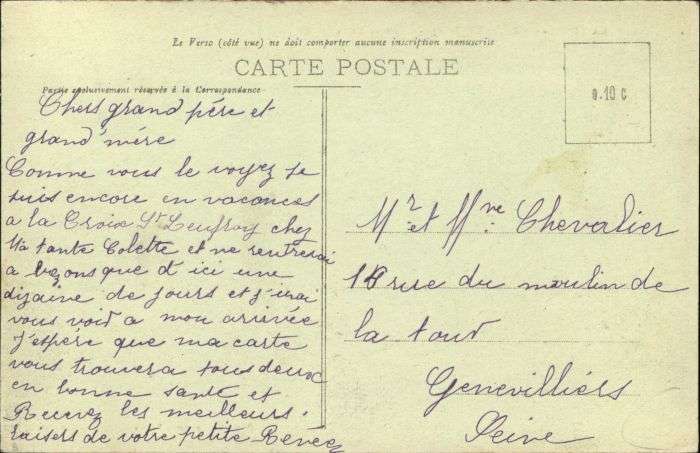 Le Verso (côté vue) ne doit comporter aucune inscription manuscrite
CARTE POSTALE
Partie exclusivement réservée à la Correspondance
0.10 c
Chers grand père et
grand'mère
Comme vous le voyez je
suis encore en vacances
a la Croix St Leufroy chez
ta tante Colette et ne rentrerai
a bezons que d'ici une
dizaine de jours et j'irai
vous voir a mon arrivée
J'espère que ma carte
vous trouvera tous deux
en bonne santé et
Recevez les meilleurs
baisers de votre petite Renée
Mr et Mme Chevalier
14 rue du moulin de
la tour
Genevilliers
Seine